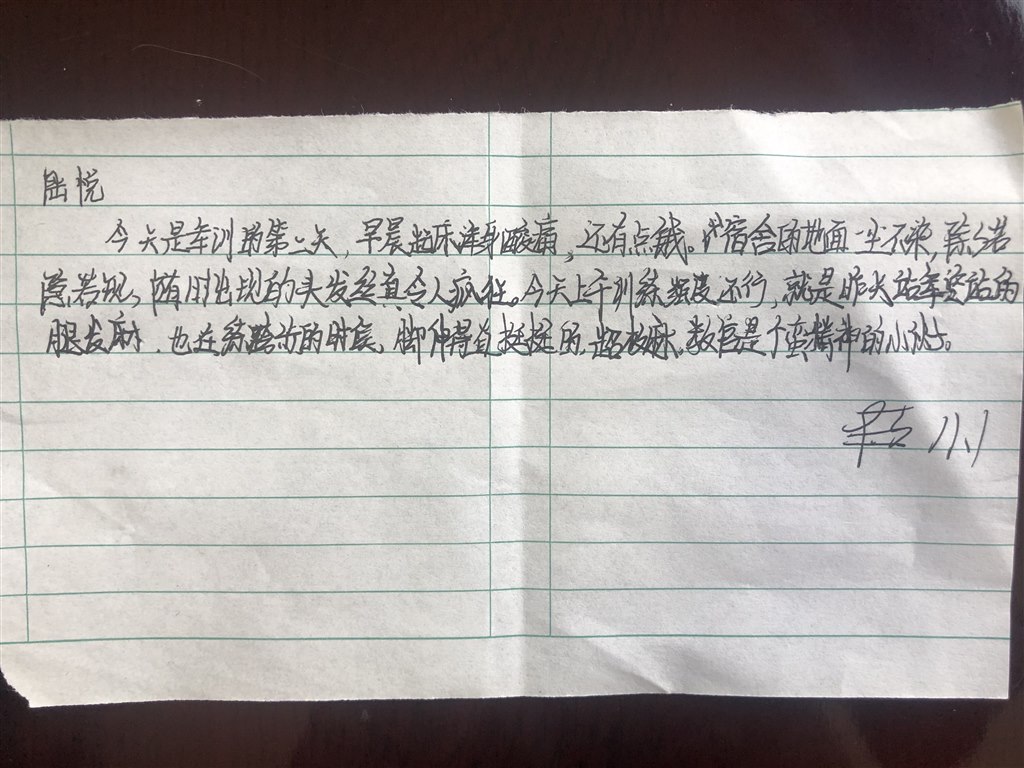 陆悦
今天是军训的第二天，早晨起床浑身酸痛，还有点饿。宿舍的地面一尘不染，
若现，随时出现的头发丝真令人疯狂。今天上午训练强度还行，就是昨天站军姿站的
腿发麻，也在练跨步的时候，脚伸得直挺挺的，超级麻。教官是个蛮精神的小伙。